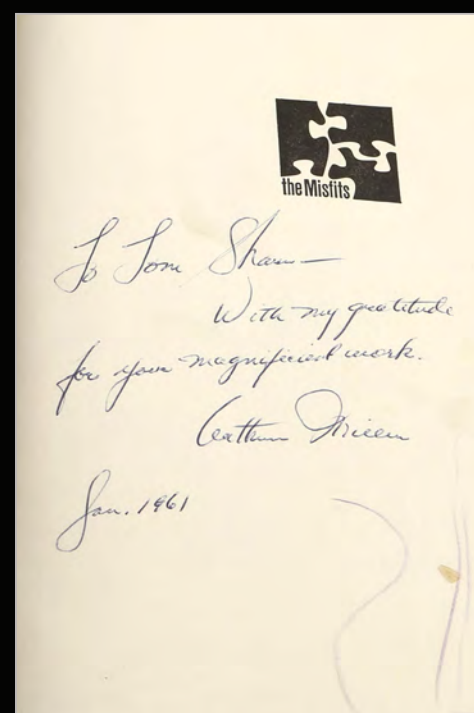 the Misfits
To Tom Shaw—
With my gratitude
for your magnificent work.
Arthur Miller
Jan. 1961